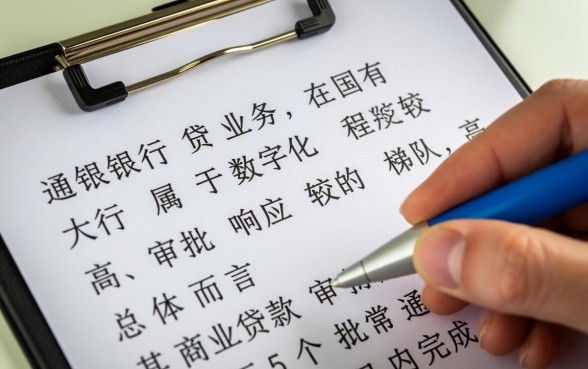 通银银行 贷 业务，在国有
大行 属 于数字化 程 较
高、审批 响应 较的 梯队，高
总体 而言
其 商业贷款 审
5 个 批常 通
内完成